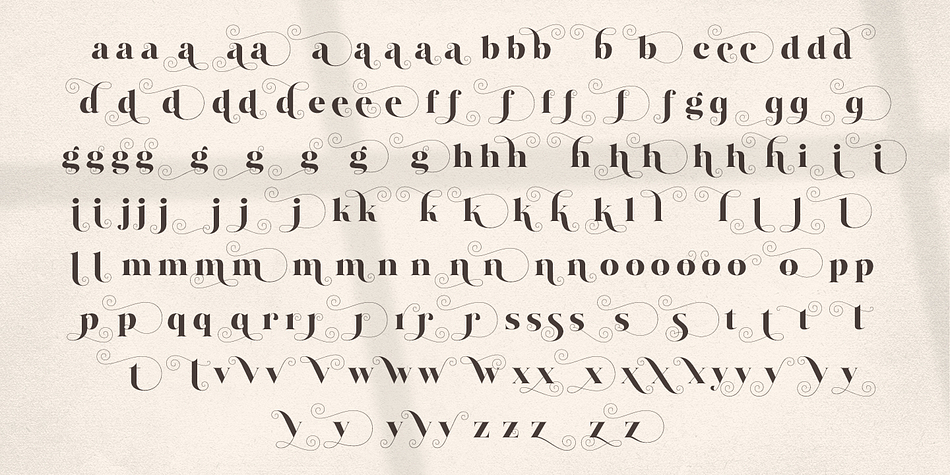 a a a a a a a a a a a a b b b b b c c c d d d d
d d d d d d e e e e f f f f f f f g g g g g
g g g g g g g g g h h h h h h h h h i i i
i i j j j j j j k k k k k k l l l l l l
l l m m m m m m n n n n n n o o o o o o o p p
p p q q q r r r r r r r s s s s s s t t t t
t t v v v v w w w w x x x x x x x y y y y y
y y y y y z z z z z